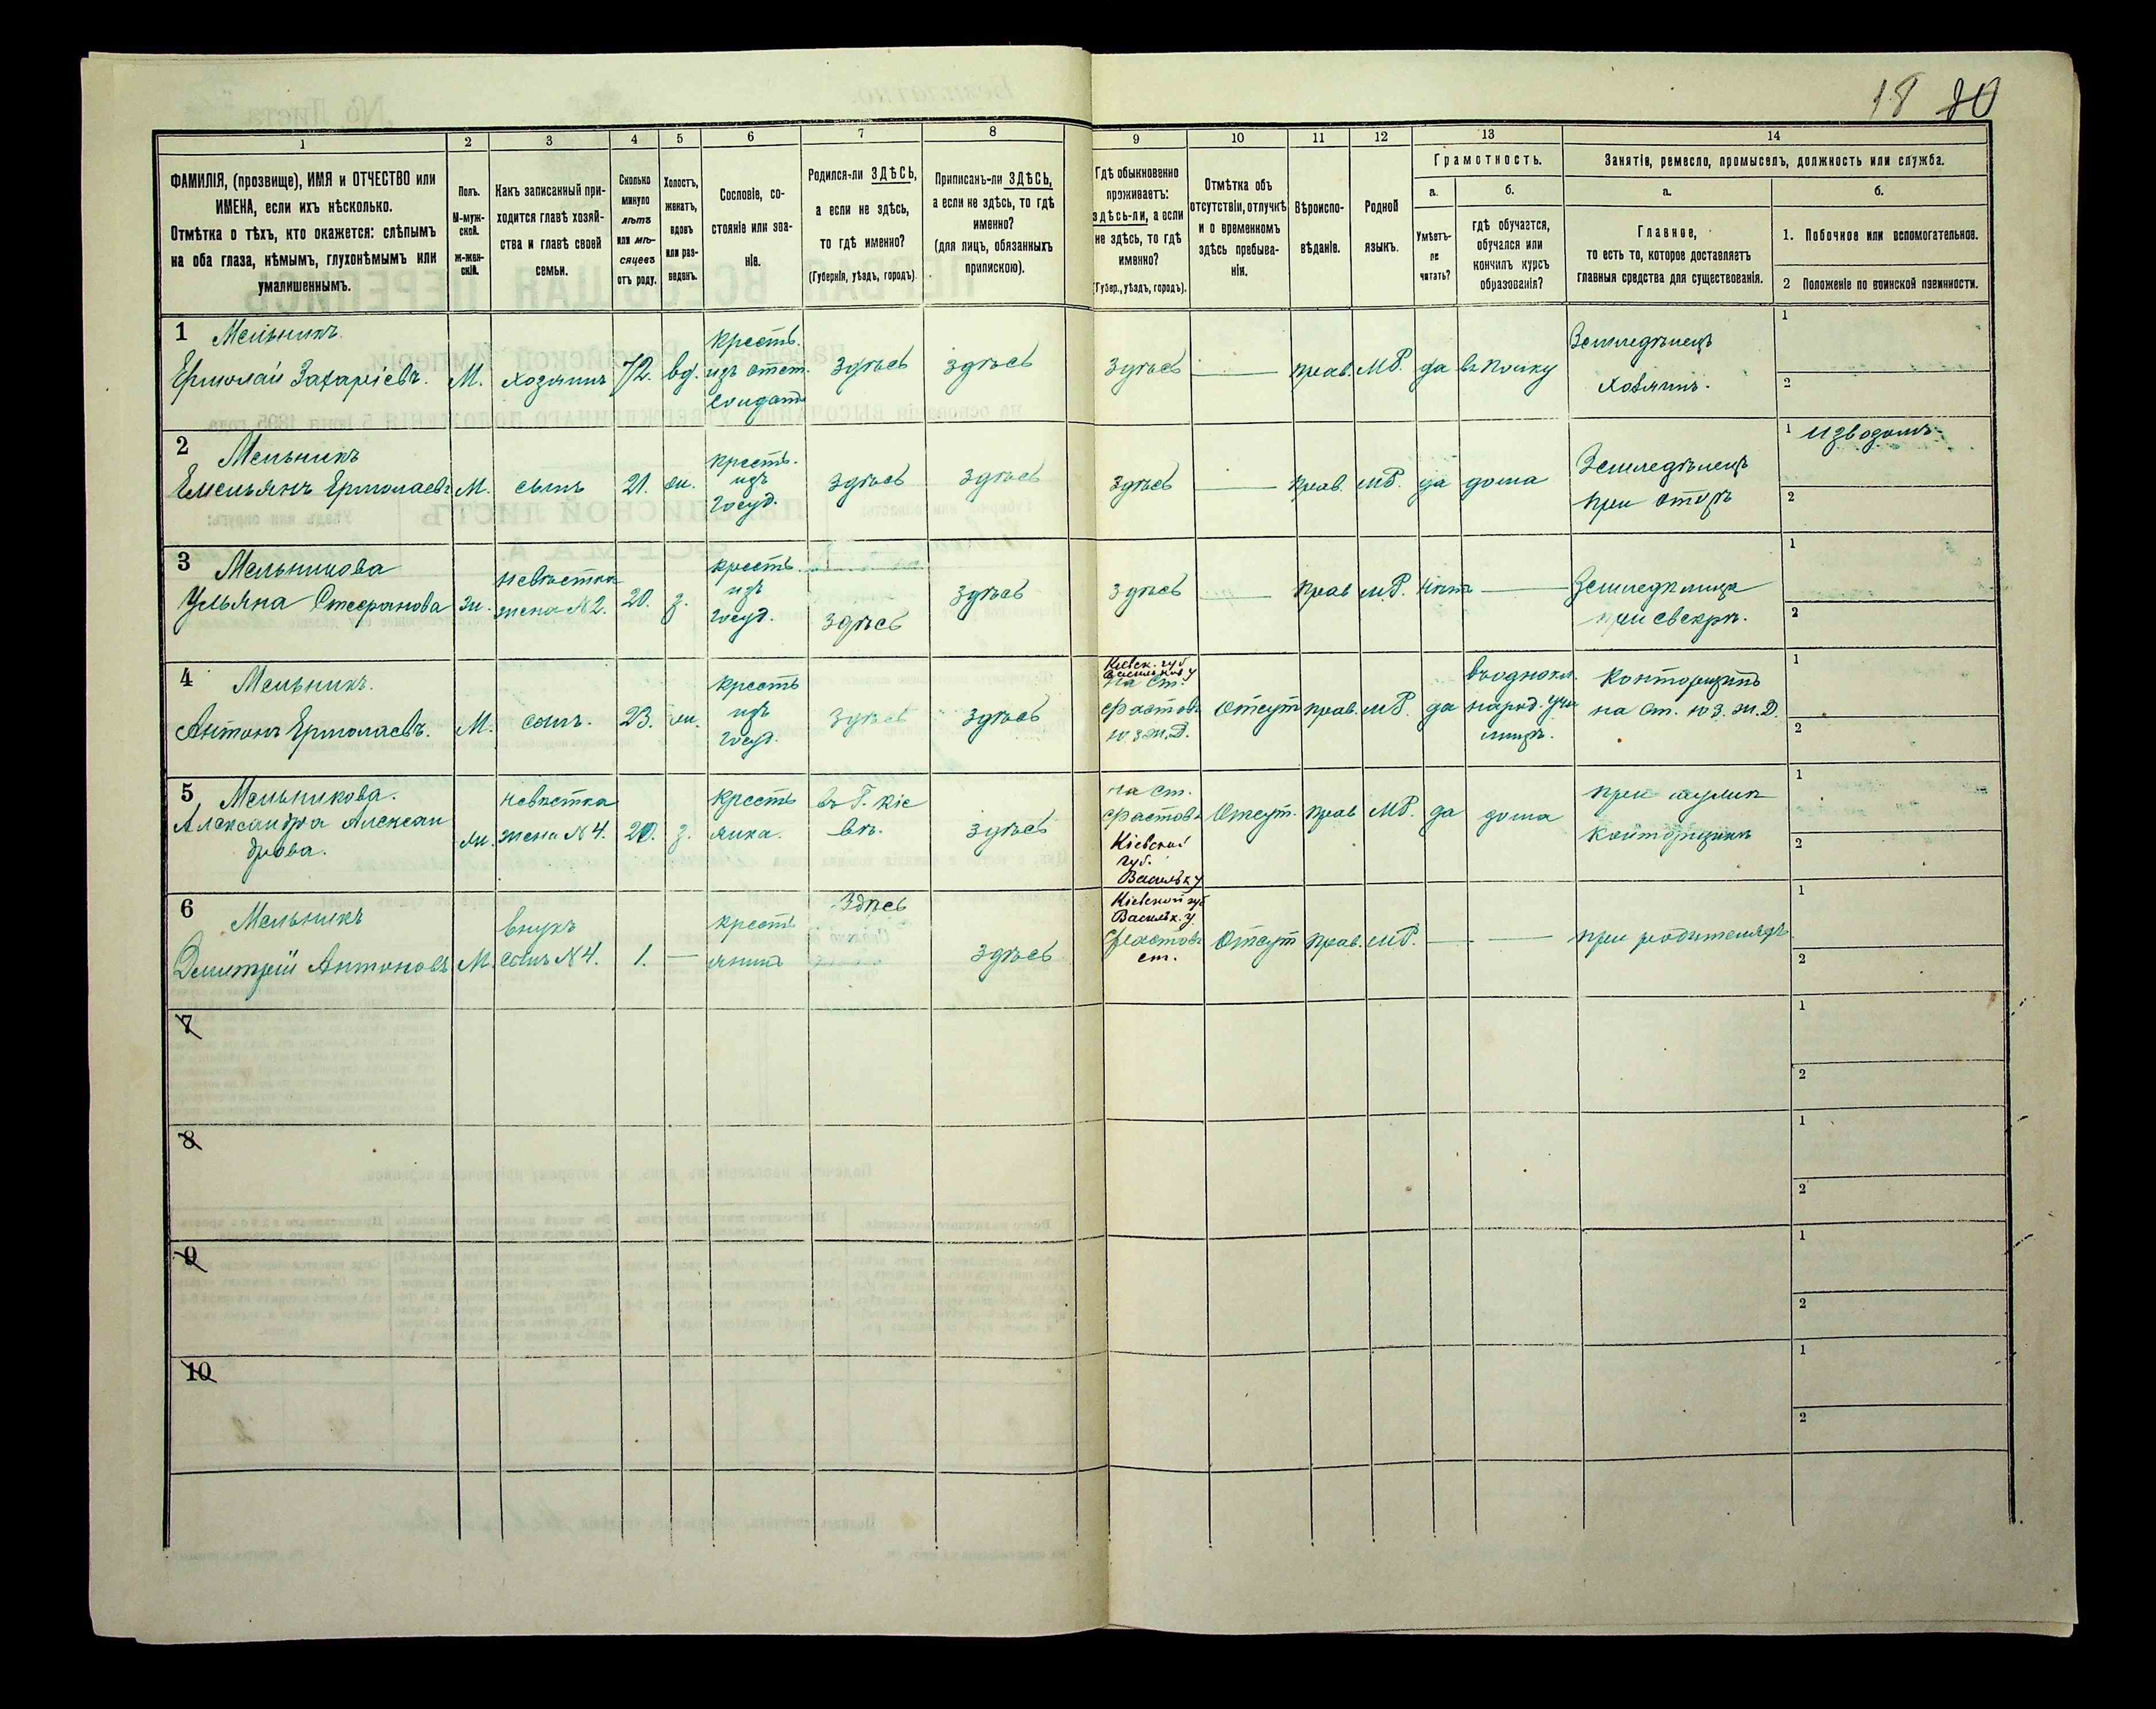 18 20
1
2
3
4
5
6
7
8
9
10
11
12
13
14
ФАМИЛІЯ, (прозвище), ИМЯ и ОТЧЕСТВО или
ИМЕНА, если ихъ нѣсколько.
Отмѣтка о тѣхъ, кто окажется: слѣпымъ
на оба глаза, нѣмымъ, глухонѣмымъ или
умалишеннымъ.
Полъ.
М-муж-
ской.
Ж-жен-
скій.
Какъ записанный при-
ходится главѣ хозяй-
ства и главѣ своей
семьи.
Сколько
минуло
лѣтъ
или мѣ-
сяцевъ
отъ роду.
Холостъ,
женатъ,
вдовъ
или раз-
веденъ.
Сословіе, со-
стояніе или зва-
ніе.
Родился-ли ЗДѢСЬ,
а если не здѣсь,
то гдѣ именно?
(Губернія, уѣздъ, городъ).
Приписанъ-ли ЗДѢСЬ,
а если не здѣсь, то гдѣ
именно?
(для лицъ, обязанныхъ
припискою).
Гдѣ обыкновенно
проживаетъ:
здѣсь-ли, а если
не здѣсь, то гдѣ
именно?
(Губер., уѣздъ, городъ).
Отмѣтка объ
отсутствіи, отлучкѣ
и о временномъ
здѣсь пребыва-
ніи.
Вѣроиспо-
вѣданіе.
Родной
языкъ.
Грамотность.
а.
Умѣетъ-
ли
читать?
б.
гдѣ обучается,
обучался или
кончилъ курсъ
образованія?
Занятіе, ремесло, промыселъ, должность или служба.
а.
Главное,
то есть то, которое доставляетъ
главныя средства для существованія.
б.
1. Побочное или вспомогательное.
2 Положеніе по воинской повинности.
1 Мельникъ
Ермолай Захаріевъ.
М.
хозяинъ
72.
вд.
крестъ.
изъ отст.
солдатъ
здѣсь
здѣсь
здѣсь
—
прав.
МР.
да
въ полку
Земледѣлецъ
хозяинъ.
1
2
2 Мельникъ
Емельянъ Ермолаевъ
М.
сынъ
21.
ж.
крестъ.
изъ
госуд.
здѣсь
здѣсь
здѣсь
—
прав.
МР.
да
дома
Земледѣлецъ
при отцѣ
1 извозомъ
2
3 Мельникова
Ульяна Стефанова
ж.
невѣстка
жена №2.
20.
з.
крестъ.
изъ
госуд.
здѣсь
здѣсь
здѣсь
—
прав
МР.
нѣтъ
—
Земледѣлица
при свекрѣ.
1
2
4 Мельникъ.
Антонъ Ермолаевъ.
М.
сынъ.
23.
ж.
крестъ
изъ
госуд.
здѣсь
здѣсь
Кіевск. губ
Васильков у
на ст.
Фастовъ
Ю.З.Ж.Д.
Отсут
прав.
МР.
да
въ однокл.
народ. учи
лищѣ.
Конторщикъ
на ст. Ю.З.Ж.Д.
1
2
5 Мельникова.
Александра Алексан
дрова.
ж.
невѣстка
жена №4.
20.
з.
крестъ
янка.
въ Г. Кіе
вѣ.
здѣсь
на ст.
Фастовъ
Кіевской
губ.
Васильк у
Отсут.
прав
МР.
да
дома
при мужѣ
конторщикѣ
1
2
6 Мельникъ
Дмитрій Антоновъ
М.
внукъ
сынъ №4.
1.
—
крестъ
янинъ
Здѣсь
здѣсь
Кіевской губ
Васильк. у.
Фастовъ
ст.
Отсут
прав.
МР.
—
—
при родителяхъ
1
2
7
1
2
8
1
2
9
1
2
10
1
2